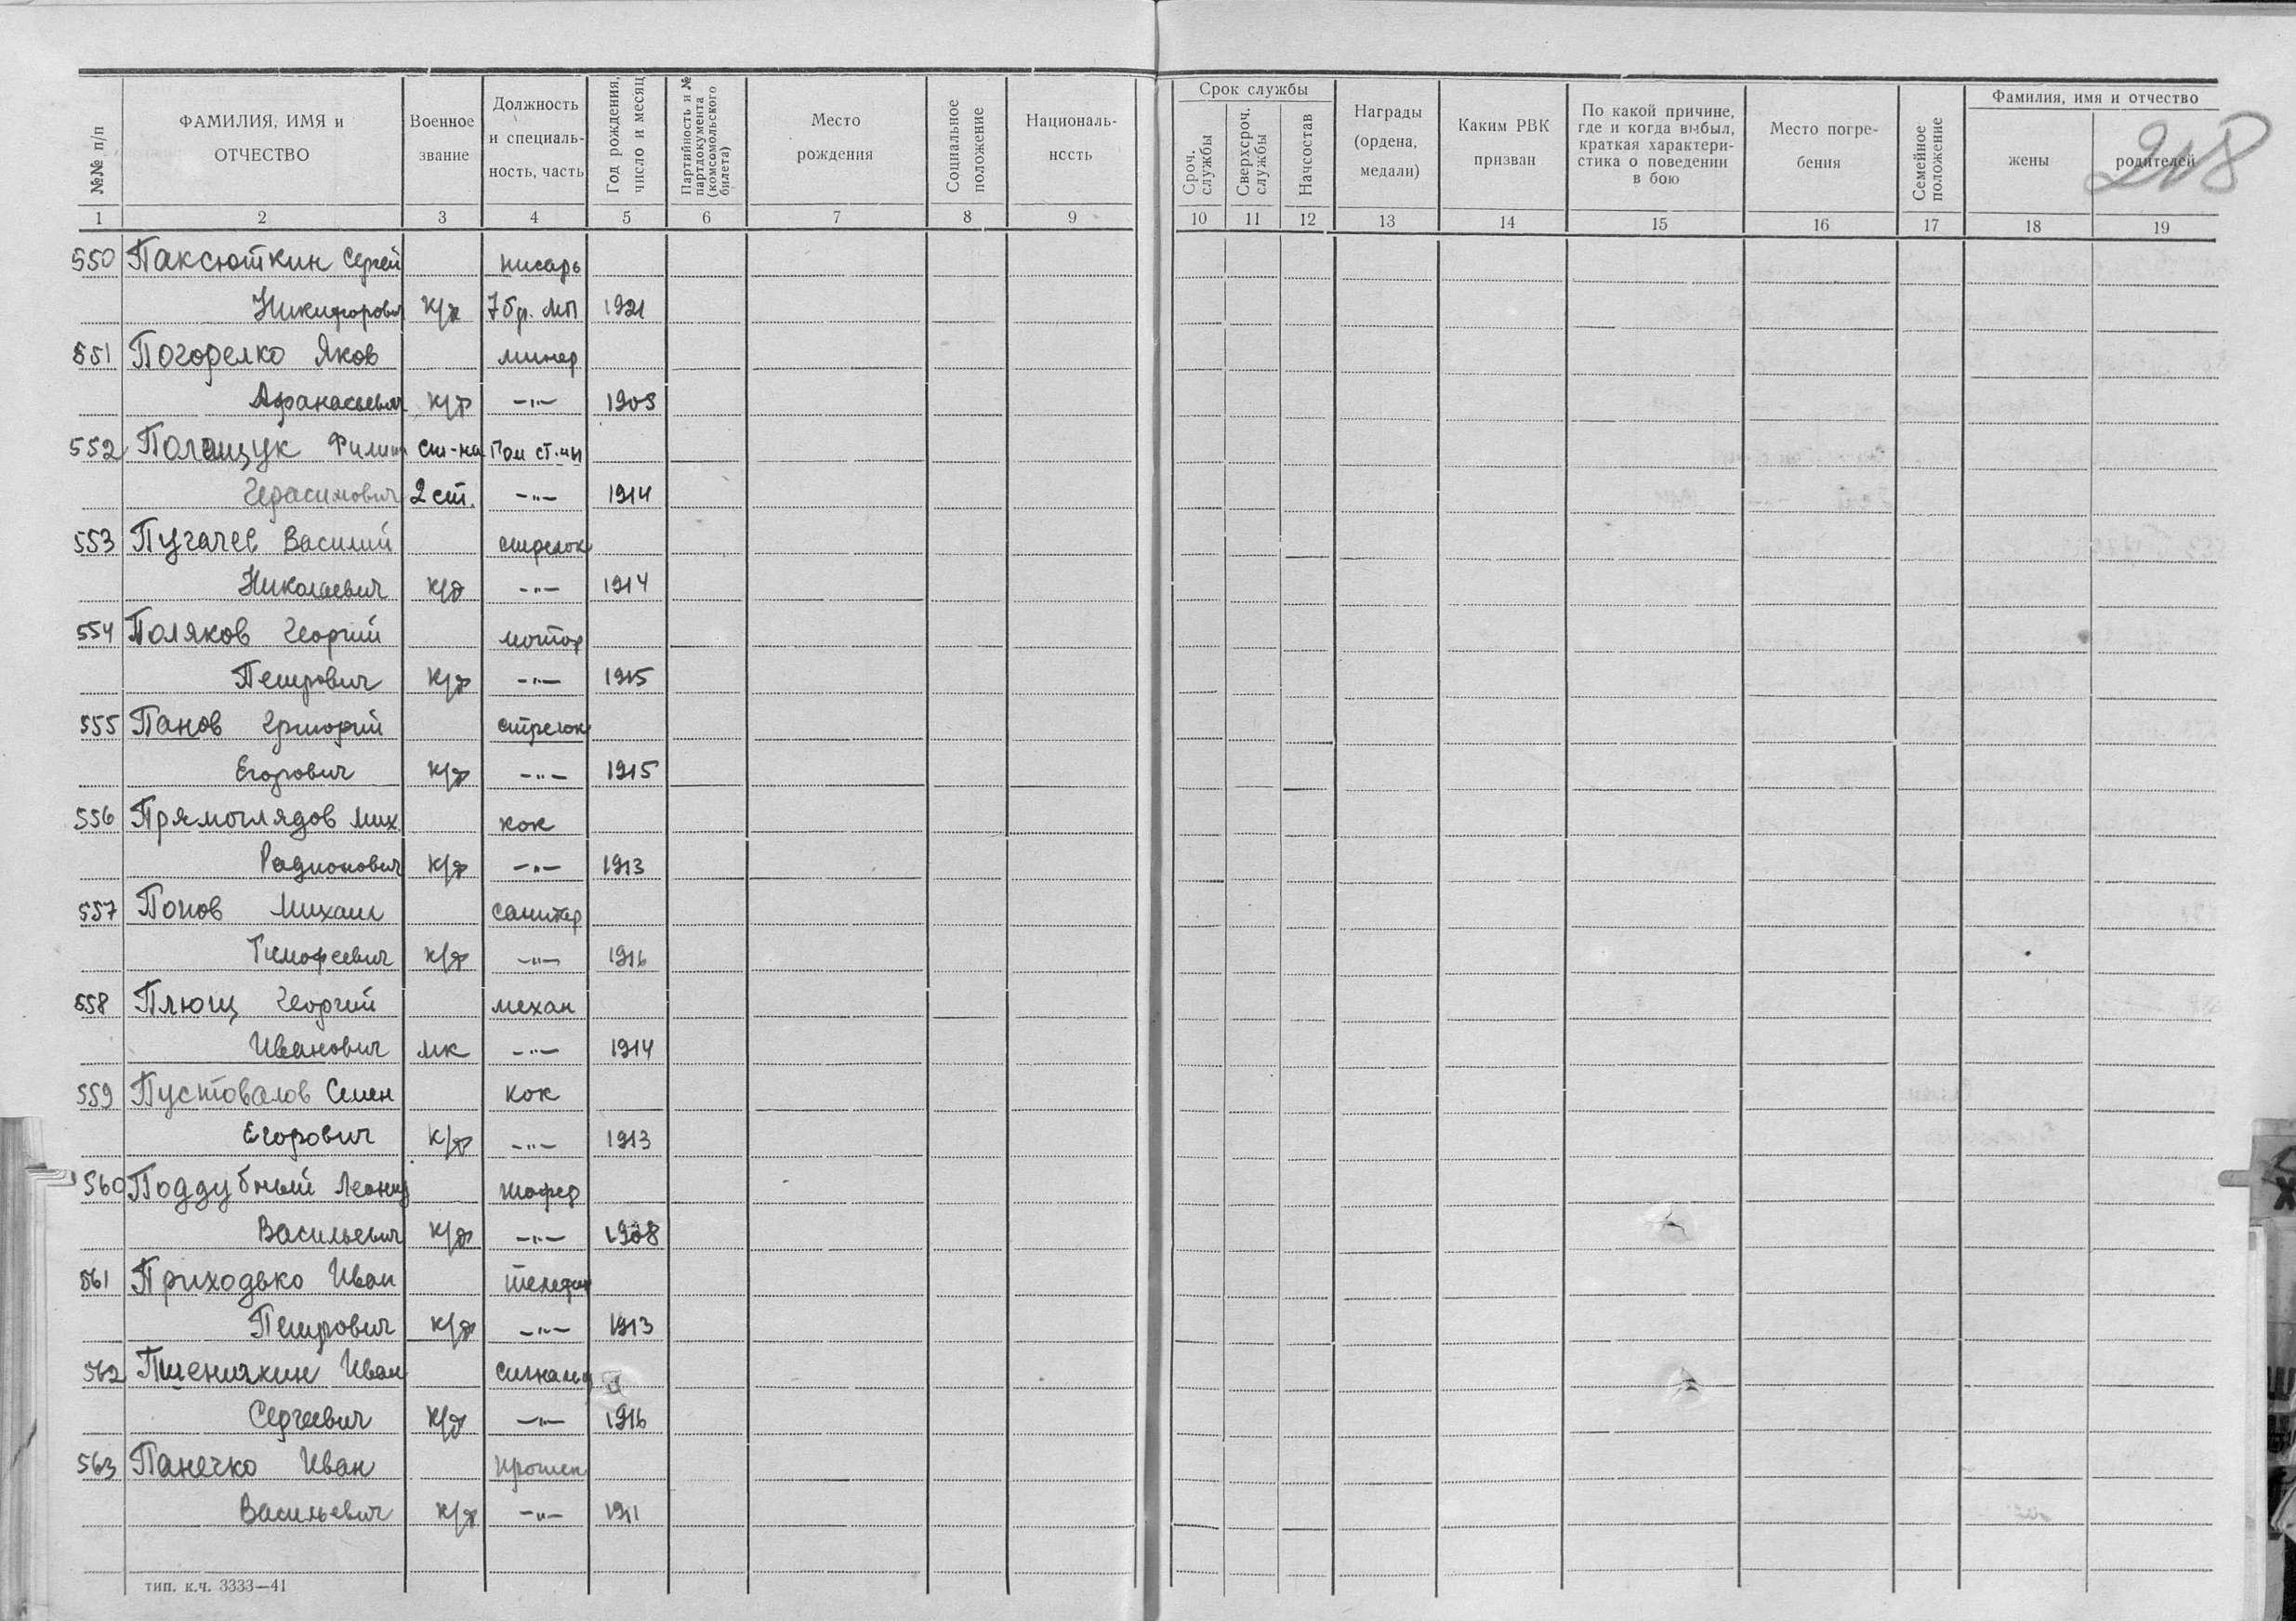 №№ п/п
ФАМИЛИЯ, ИМЯ и ОТЧЕСТВО
Военное звание
Должность и специаль-ность, часть
Год рождения, число и месяц
Партийность и № партдокумента (комсомольского билета)
Место рождения
Социальное положение
Националь-ность
Срок службы
Сроч. службы
Сверхсроч. службы
Начсостав
Награды (ордена, медали)
Каким РВК призван
По какой причине, где и когда выбыл, краткая характери-стика о поведении в бою
Место погре-бения
Семейное положение
Фамилия, имя и отчество
жены
родителей
218
1 2 3 4 5 6 7 8 9 10 11 12 13 14 15 16 17 18 19
550 Паксюткин Сергей писарь
Никифорович к/ф 7 бр. МП 1921
551 Погорелко Яков минер
Афанасьевич к/ф -"-
552 Полищук Филип ст-на Пом ст.
Герасимович 2 ст. -"- 1914
553 Пугачев Василий стрелок
Николаевич к/ф -"- 1914
554 Поляков Георгий мотор
Петрович к/ф -"- 1915
555 Панов Григорий стрелок
Егорович к/ф -"- 1915
556 Прямоглядов Мих. кок
Радионович к/ф -"- 1913
557 Попов Михаил санитар
Тимофеевич к/ф -"- 1916
558 Плющ Георгий механ
Иванович мк -"- 1914
559 Пустовалов Семен кок
Егорович к/ф -"- 1913
560 Поддубный Леонид шофер
Васильевич к/ф -"- 1908
561 Приходько Иван телефон
Петрович к/ф -"- 1913
562 Пшеничкин Иван сигнальщ
Сергеевич к/ф -"- 1916
563 Панечко Иван
Васильевич к/ф -"- 1911
тип. к.ч. 3333—41